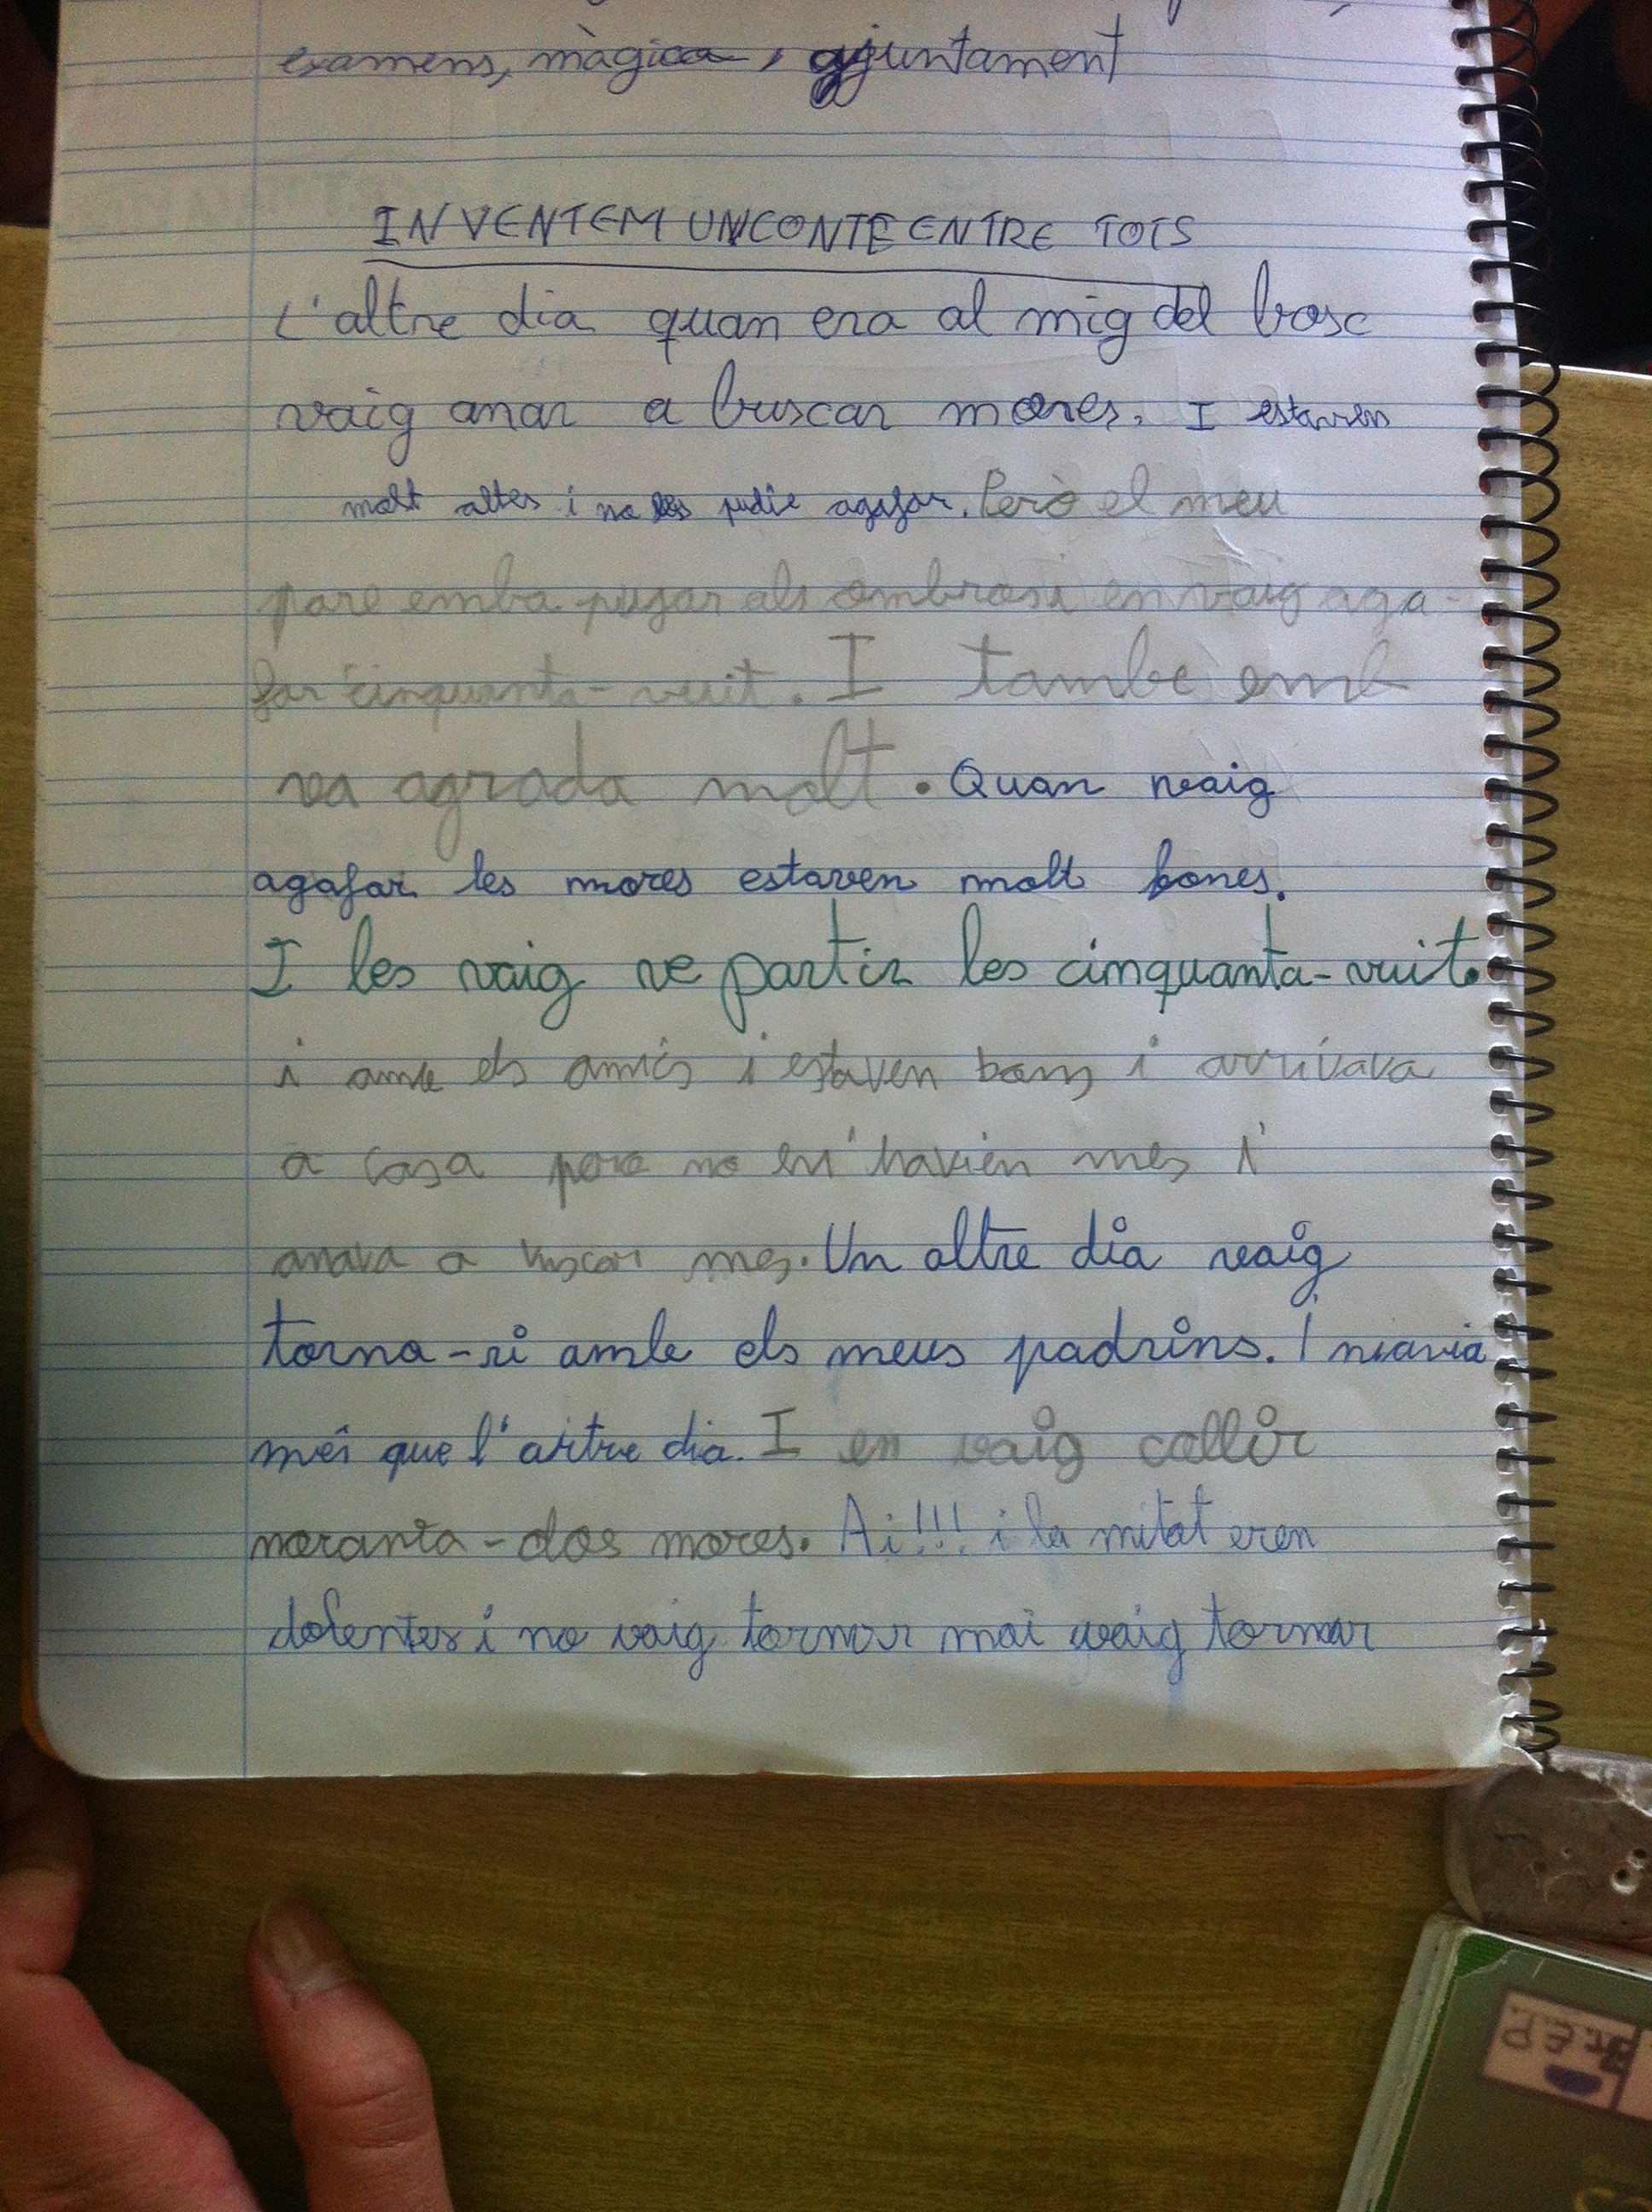 examens, màgica, ajuntament
INVENTEM UN CONTE ENTRE TOTS
L'altre dia quan era al mig del bosc
vaig anar a buscar mores. I estaven
molt altes i no les podie agafar. Però el meu
pare emba pujar als ombros i en vaig aga-
far cinquanta-vuit. I tambe emb
va agrada molt. Quan vaig
agafar les mores estaven molt bones.
I les vaig repartir les cinquanta-vuit.
i amb els amics i estaven bons i arrivava
a casa pero no en havien mes i
anava a buscar mes. Un altre dia vaig
torna-ri amb els meus padrins. I niavia
més que l'artre dia. I en vaig collir
noranta-dos mores. Ai!!! i la mitat eren
dolentes i no vaig tornar mai vaig tornar
P.E.P.